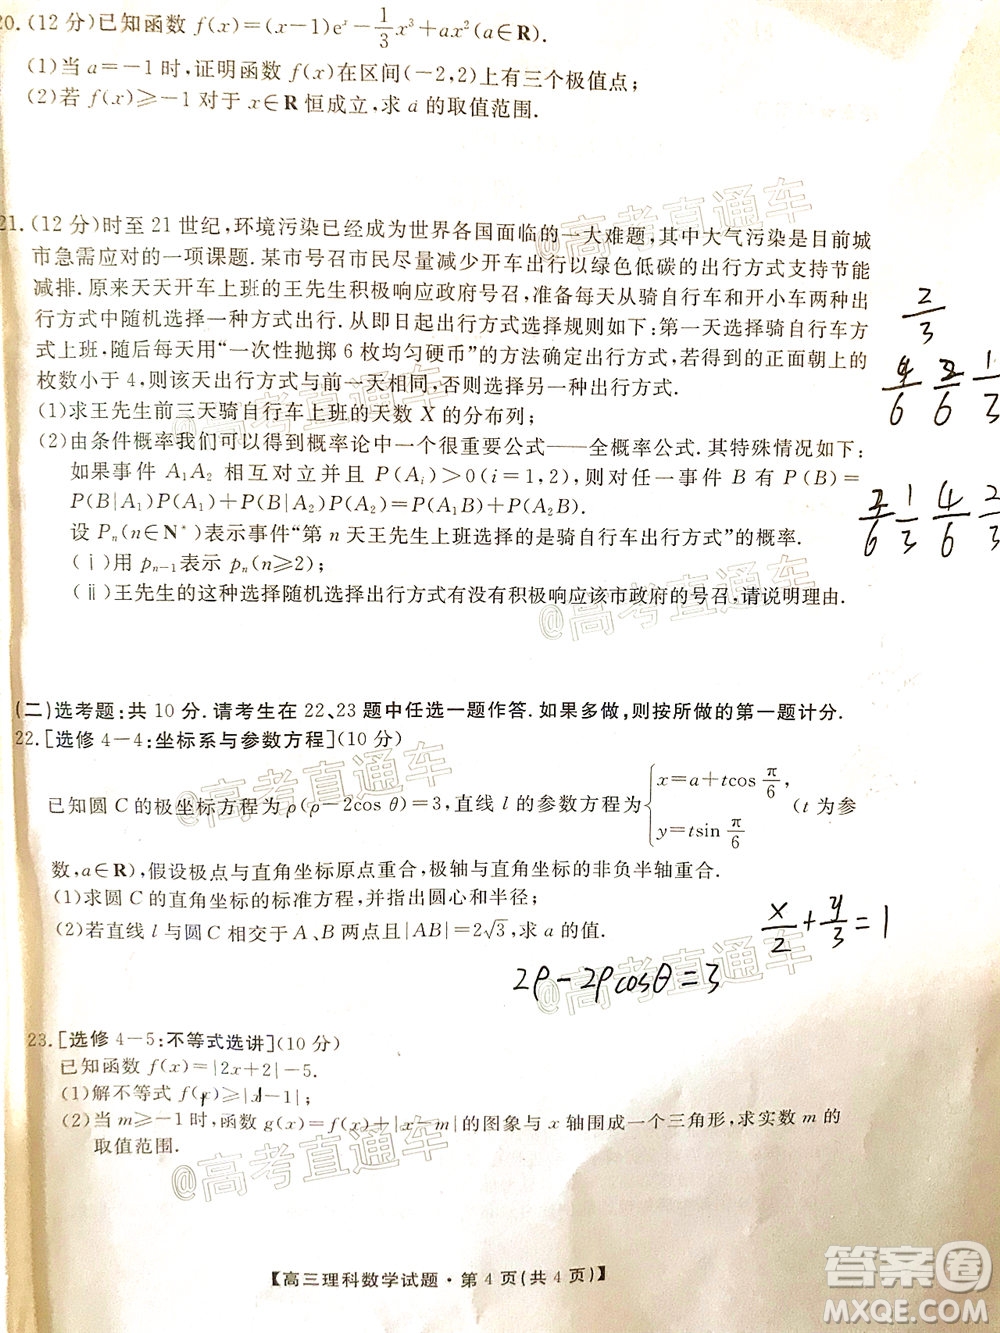 20.(12分)已知函数 f(x)=(x-1)eˣ-1/3x³+ax²(a∈R).
(1)当 a=-1 时,证明函数 f(x)在区间(-2,2)上有三个极值点;
(2)若 f(x)≥-1 对于 x∈R 恒成立,求 a 的取值范围.
21.(12分)时至 21 世纪,环境污染已经成为世界各国面临的一大难题,其中大气污染是目前城
市急需应对的一项课题.某市号召市民尽量减少开车出行以绿色低碳的出行方式支持节能
减排.原来天天开车上班的王先生积极响应政府号召,准备每天从骑自行车和开小车两种出
行方式中随机选择一种方式出行.从即日起出行选择规则如下:第一天选择骑自行车方式
上班,随后每天用“一次性抛掷 6 枚均匀硬币”的方法确定出行方式,若得到的正面朝上的
枚数小于 4,则该天出行方式与前一天相同,否则选择另一种出行方式.
(1)求王先生前三天骑自行车上班的天数 X 的分布列;
(2)由条件概率我们可以得到概率论中一个很重要公式——全概率公式.其特殊情况如下:
如果事件 A₁A₂ 相互对立并且 P(Aᵢ)>0(i=1,2),则对任一事件 B 有 P(B)=
P(B|A₁)P(A₁)+P(B|A₂)P(A₂)=P(A₁B)+P(A₂B).
设 Pₙ(n∈N*)表示事件“第 n 天王先生上班选择的是骑自行车出行”的概率.
(ⅰ)用 pₙ₋₁表示 pₙ(n≥2);
(ⅱ)王先生的这种选择随机选择出行方式有没有积极响应该市政府的号召,请说明理由.
2/3
4/6 2/6 1/3
2/6 1/3 4/6 2/3
(二)选考题:共 10 分.请考生在 22、23 题中任选一题作答.如果多做,则按所做的第一题计分.
22.[选修 4-4:坐标系与参数方程](10 分)
已知圆 C 的极坐标方程为 ρ(ρ-2cos θ)=3,直线 l 的参数方程为{x=a+tcos π/6, y=tsin π/6 (t 为参
数,a∈R),假设极点与直角坐标原点重合,极轴与直角坐标系的非负半轴重合.
(1)求圆 C 的直角坐标的标准方程,并指出圆心和半径;
(2)若直线 l 与圆C 相交于 A、B 两点且|AB|=2√3,求 a 的值.
x/2+y/3=1
2ρ-2ρcosθ=3
23.[选修 4-5:不等式选讲](10 分)
已知函数 f(x)=|2x+2|-5.
(1)解不等式 f(x)≥|x-1|;
(2)当 m≥-1 时,函数 g(x)=f(x)+|x-m|的图象与 x 轴围成一个三角形,求实数 m 的
取值范围.
【高三理科数学试题·第 4 页(共 4 页)】
@高考直通车
@高考直通车
@高考直通车
@高考直通车
@高考直通车
@高考直通车
答案圈
MXQE.COM